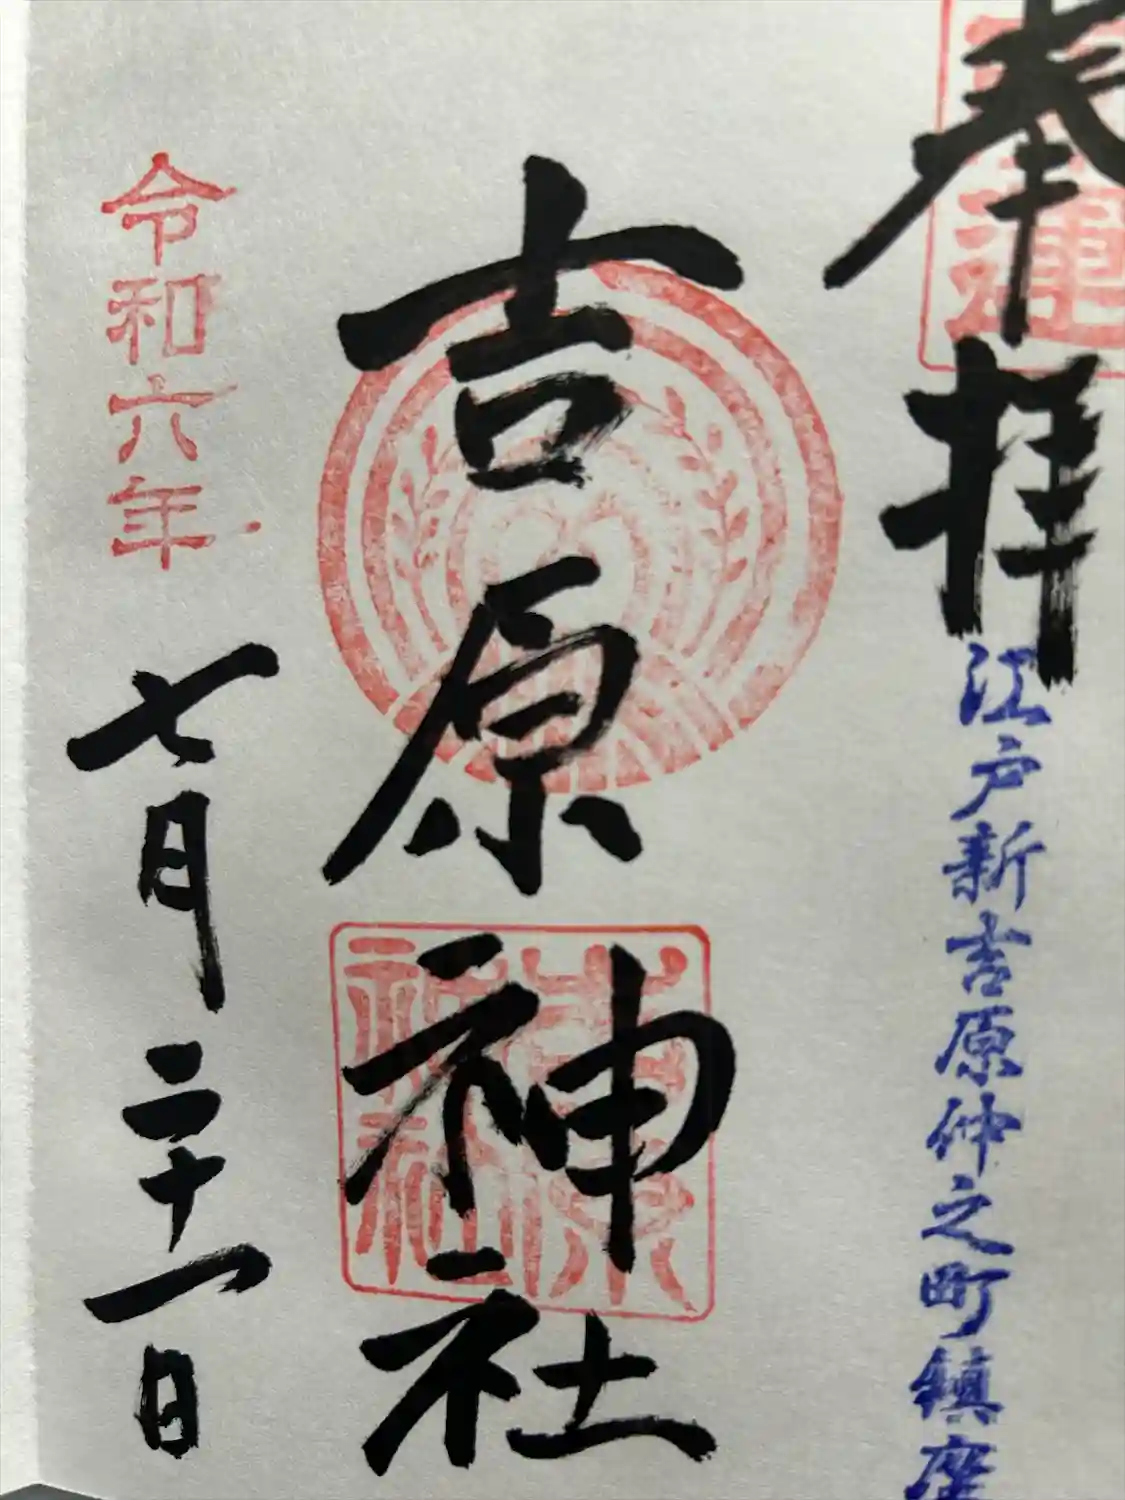 奉拝
江戸新吉原仲之町鎮座
吉原神社
吉原神社
令和六年
七月二十一日